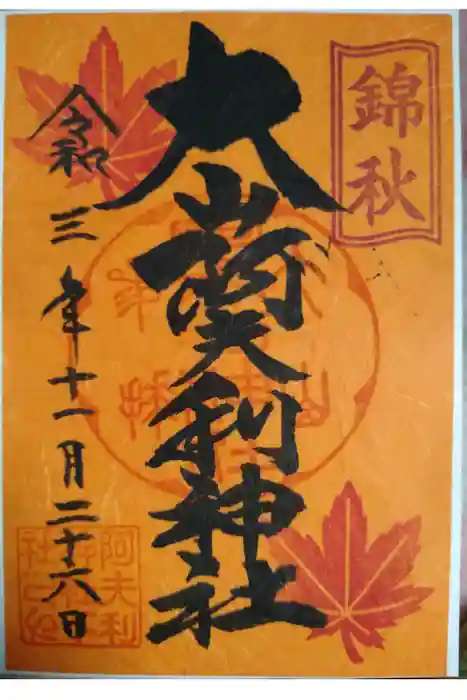 錦秋
大山阿夫利神社
令和三年十一月二十六日
阿夫利